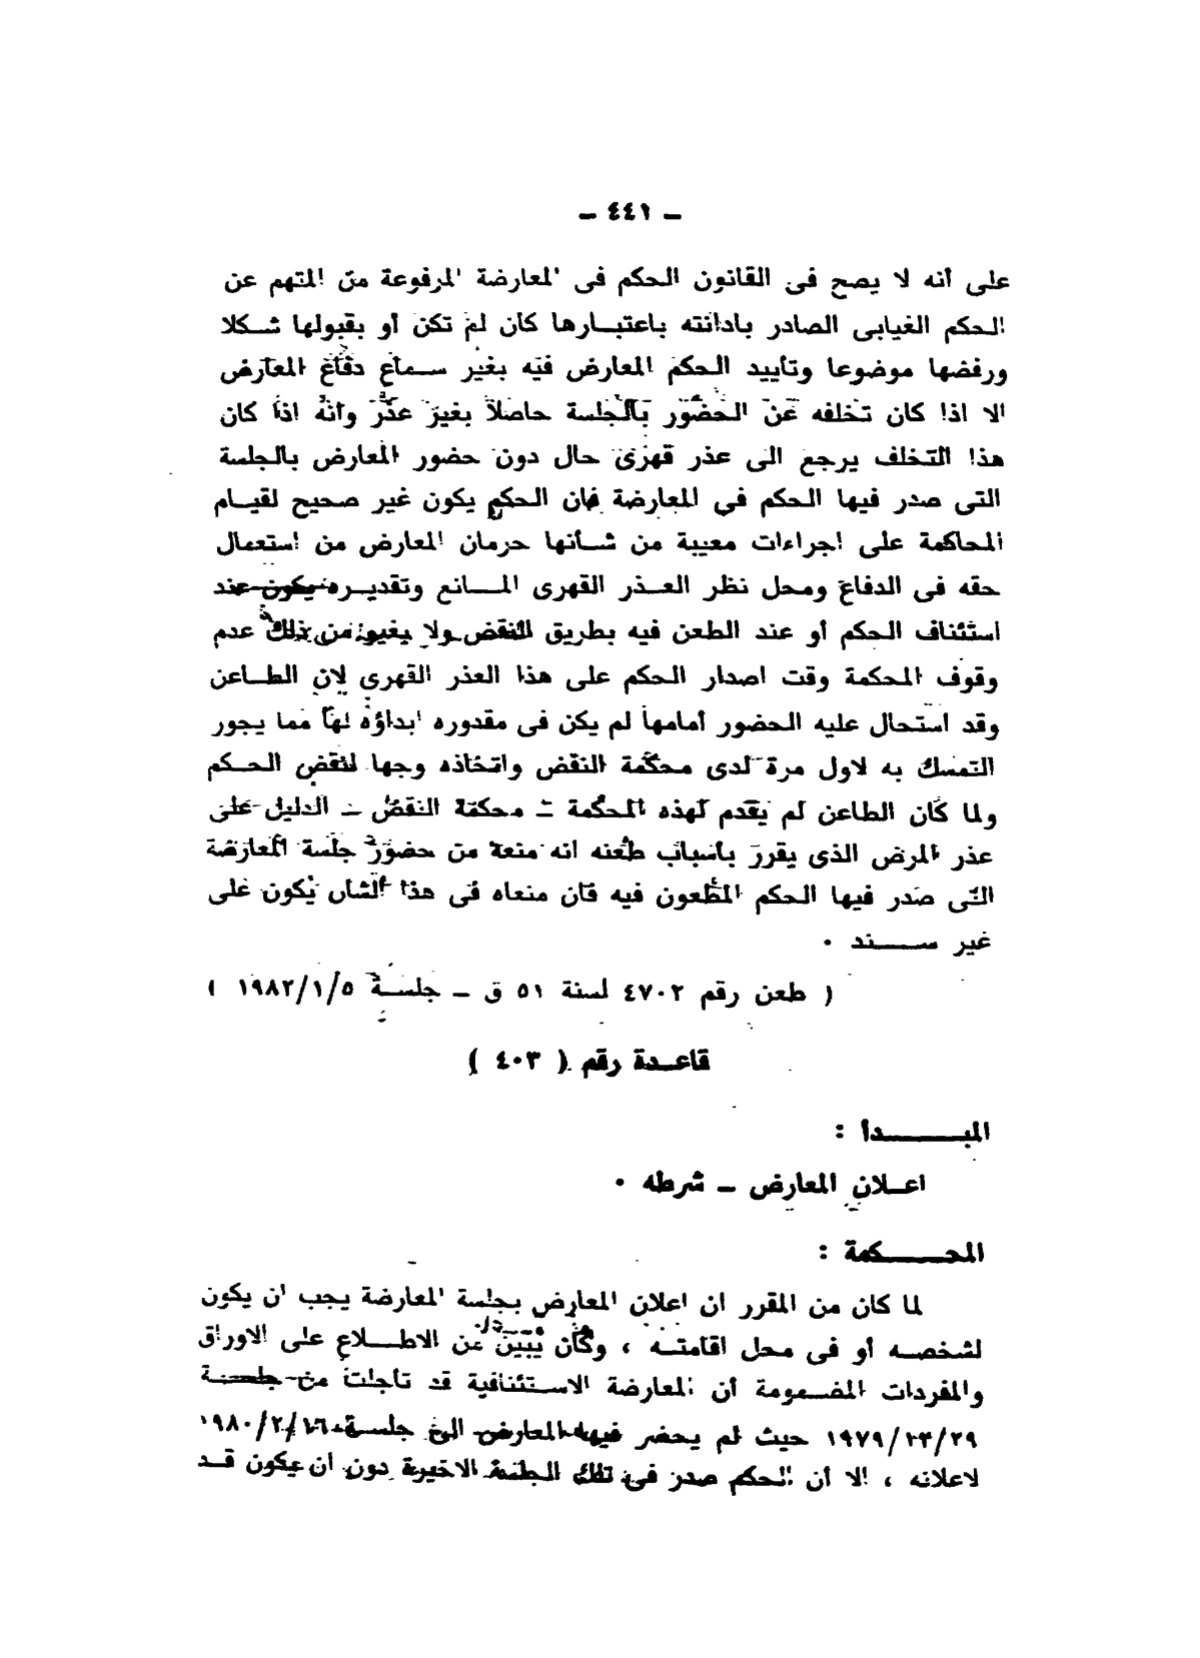 ـ ٤٤١ ـ
على أنه لا يصح فى القانون الحكم فى المعارضة المرفوعة من المتهم عن
الحكم الغيابى الصادر بادانته باعتبارها كان لم تكن أو بقبولها شكلا
ورفضها موضوعا وتأييد الحكم المعارض فيه بغير سماع دفاع المعارض
الا اذا كان تخلفه عن الحضور بالجلسة حاصلا بغير عذر وانه اذا كان
هذا التخلف يرجع الى عذر قهرى حال دون حضور المعارض بالجلسة
التى صدر فيها الحكم فى المعارضة فان الحكم يكون غير صحيح لقيام
المحاكمة على اجراءات معيبة من شأنها حرمان المعارض من استعمال
حقه فى الدفاع ومحل نظر العذر القهرى المانع وتقديره يكون عند
استئناف الحكم أو عند الطعن فيه بطريق النقض ولا يغير من ذلك عدم
وقوف المحكمة وقت اصدار الحكم على هذا العذر القهرى لان الطاعن
وقد استحال عليه الحضور أمامها لم يكن فى مقدوره ابداؤه لها مما يجور
التمسك به لاول مرة لدى محكمة النقض واتخاذه وجها لنقض الحكم
ولما كان الطاعن لم يقدم لهذه المحكمة ـ محكمة النقض ـ الدليل على
عذر المرض الذى يقرر بأسباب طعنه انه منعه من حضور جلسة المعارضة
التى صدر فيها الحكم المطعون فيه فان منعاه فى هذا الشأن يكون على
غير سند ٠
( طعن رقم ٤٧٠٢ لسنة ٥١ ق ـ جلسة ١٩٨٢/١/٥ )
قاعدة رقم ( ٤٠٣ )
المبدأ :
اعلان المعارض ـ شرطه ٠
المحكمة :
لما كان من المقرر ان اعلان المعارض بجلسة المعارضة يجب ان يكون
لشخصه أو فى محل اقامته ، وكان يبين من الاطلاع على الاوراق
والمفردات المضمومة أن المعارضة الاستئنافية قد تأجلت من جلسة
حيث لم يحضر فيها المعارض الى جلسة ١٩٨٠/٢/١٦
لاعلانه ، الا أن الحكم صدر فى تلك الجلسة الاخيرة دون أن يكون قد